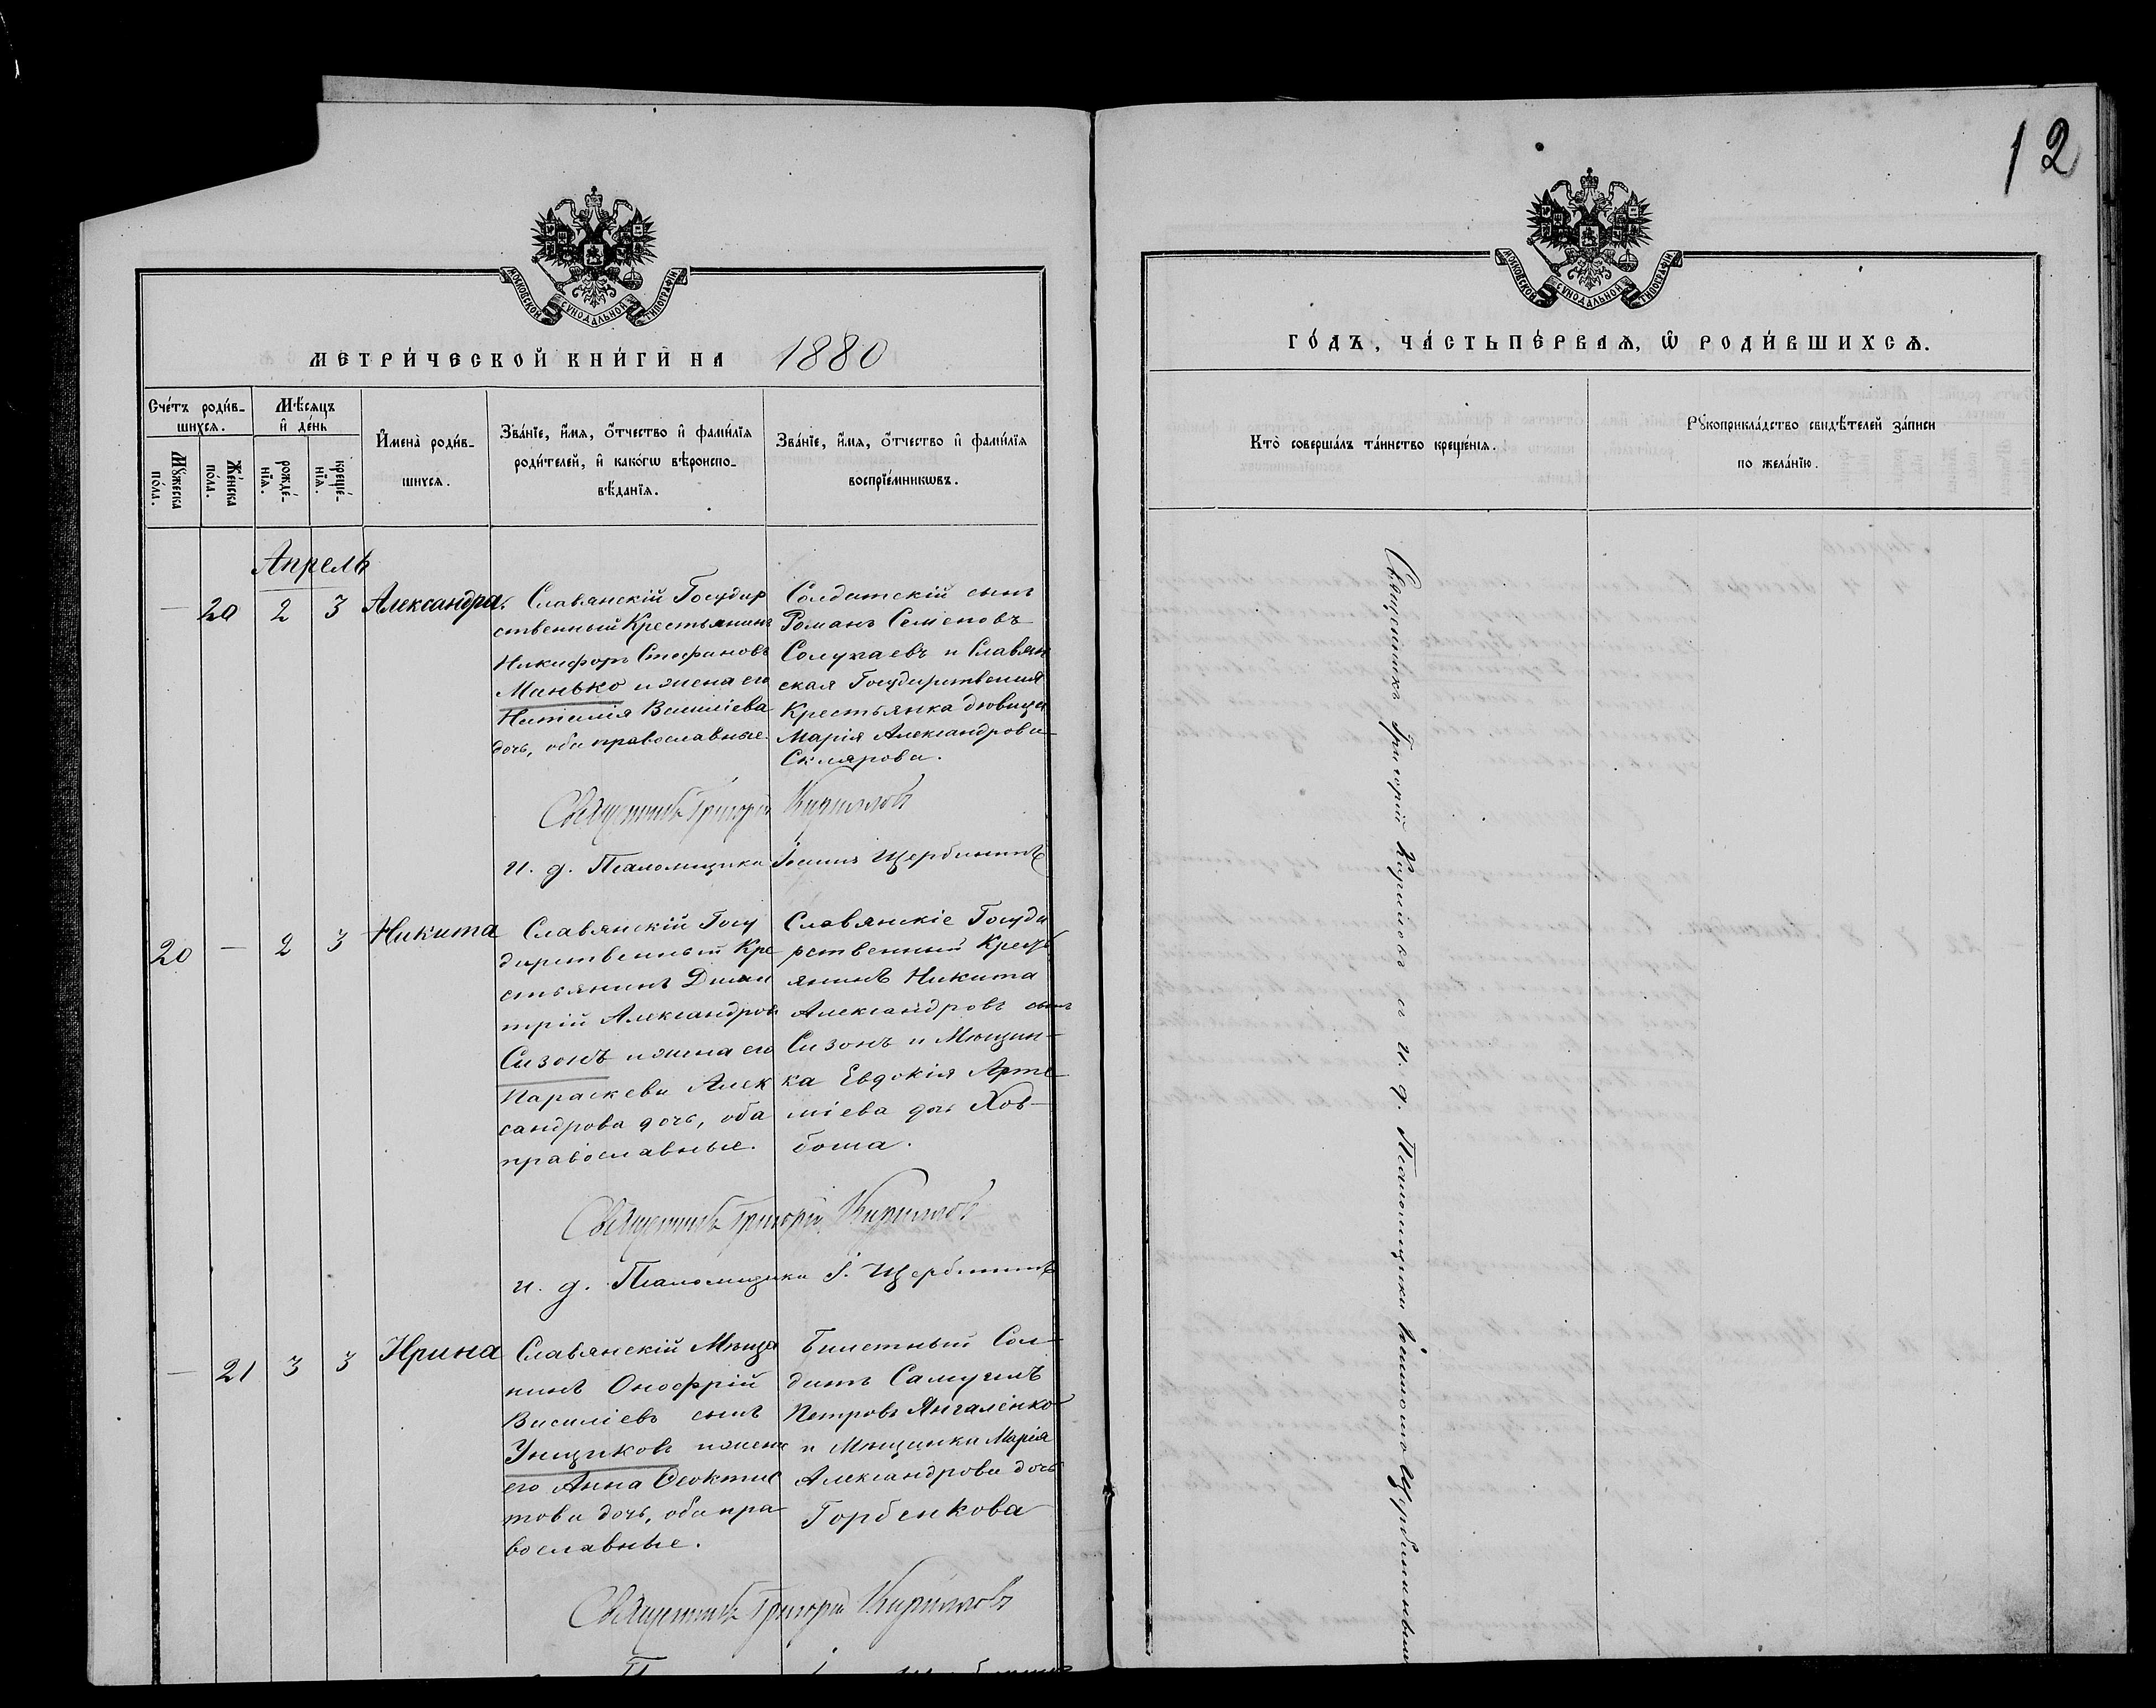 12
МОСКОВСКОЙ СУНОДАЛЬНОЙ ТИПОГРАФІИ
МОСКОВСКОЙ СУНОДАЛЬНОЙ ТИПОГРАФІИ
МЕТРИ́ЧЕСКОЙ КНИ́ГИ НА 1880
ГО́ДЪ, ЧА́СТЬ ПЕ́РВАѦ, Ѡ҆ РОДИ́ВШИХСѦ.
Сче́тъ роди́в-
шихсѧ.
Мꙋ́жеска
по́ла.
Же́нска
по́ла.
Мѣ́сѧцъ
и҆ де́нь
рожде́-
нїѧ.
креще́-
нїѧ.
И҆мена̀ роди́в-
шихсѧ.
Зва́нїе, и҆́мѧ, ѻ҆́тчество и҆ фами́лїѧ
роди́телей, и҆ како́гѡ вѣ́роиспо-
вѣ́данїѧ.
Зва́нїе, и҆́мѧ, ѻ҆́тчество и҆ фами́лїѧ
воспрїе́мникѡвъ.
Кто̀ соверша́лъ та́инство креще́нїѧ.
Рꙋкоприкла́дство свидѣ́телей за́писи
по жела́нїю.
Апрель
— 20 2 3 Александра.
Славянскій Государ
ственный Крестьянинъ
Никифоръ Стефановъ
Манько и жена его
Наталія Василіева
дочь, оба православные.
Солдатскій сынъ
Романъ Семеновъ
Солухаевъ и Славян
ская Государственная
Крестьянка дѣвица
Марія Александрова
Склярова.
Священникъ Григорій Кирилловъ
И. д. Псаломщика Іоаннъ Щербининъ
20 — 2 3 Никита
Славянскій Госу
дарственный Кре
стьянинъ Дими
трій Александровъ
Сизонъ и жена его
Параскева Алек
сандрова дочь, оба
православные.
Славянскіе Госуда
рственный Кресть
янинъ Никита
Александровъ сынъ
Сизонъ и Мѣщан-
ка Евдокія Арте
міева дочь Хов-
боша.
Священникъ Григорій Кирилловъ
И. д. Псаломщика І. Щербининъ
— 21 3 3 Ирина
Славянскій Мѣща
нинъ Онофрій
Василіевъ сынъ
Унщиковъ и жена
его Анна Феоктис
това дочь, оба пра-
вославные.
Билетный Сол-
датъ Самуилъ
Петровъ Янгаленко
и Мѣщанка Марія
Александрова дочь
Горбенкова
Священникъ Григорій Кирилловъ
Священникъ Григорій Кириловъ съ и. д. Псаломщика Іоанномъ Щербининымъ